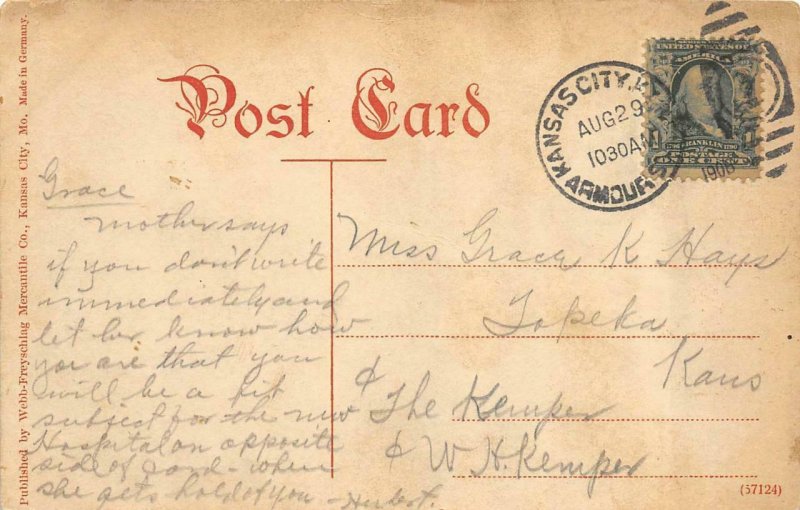 Post Card
Published by Webb-Freyschlag Mercantile Co., Kansas City, Mo. Made in Germany.
KANSAS CITY,
AUG 29
1030AM
1908
ARMOUR
UNITED STATES OF
AMERICA
FRANKLIN
POSTAGE
ONE CENT
Grace
Mother says
if you don't write
immediately and
let her know how
you are that you
will be a fit
subject for the new
Hospital on opposite
side of card - when
she gets hold of you - Herbert.
Miss Grace K Hays
Topeka
Kans
% The Kemper
% W. H. Kemper
(57124)